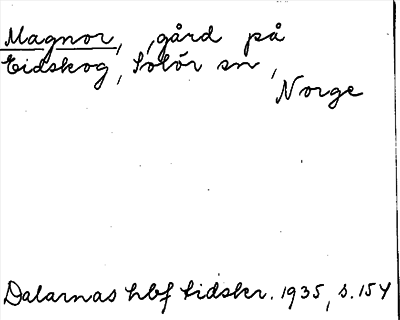 Magnor, gård på
Eidskog, Solör sn,
Norge
Dalarnas hbf tidskr. 1935, s. 154